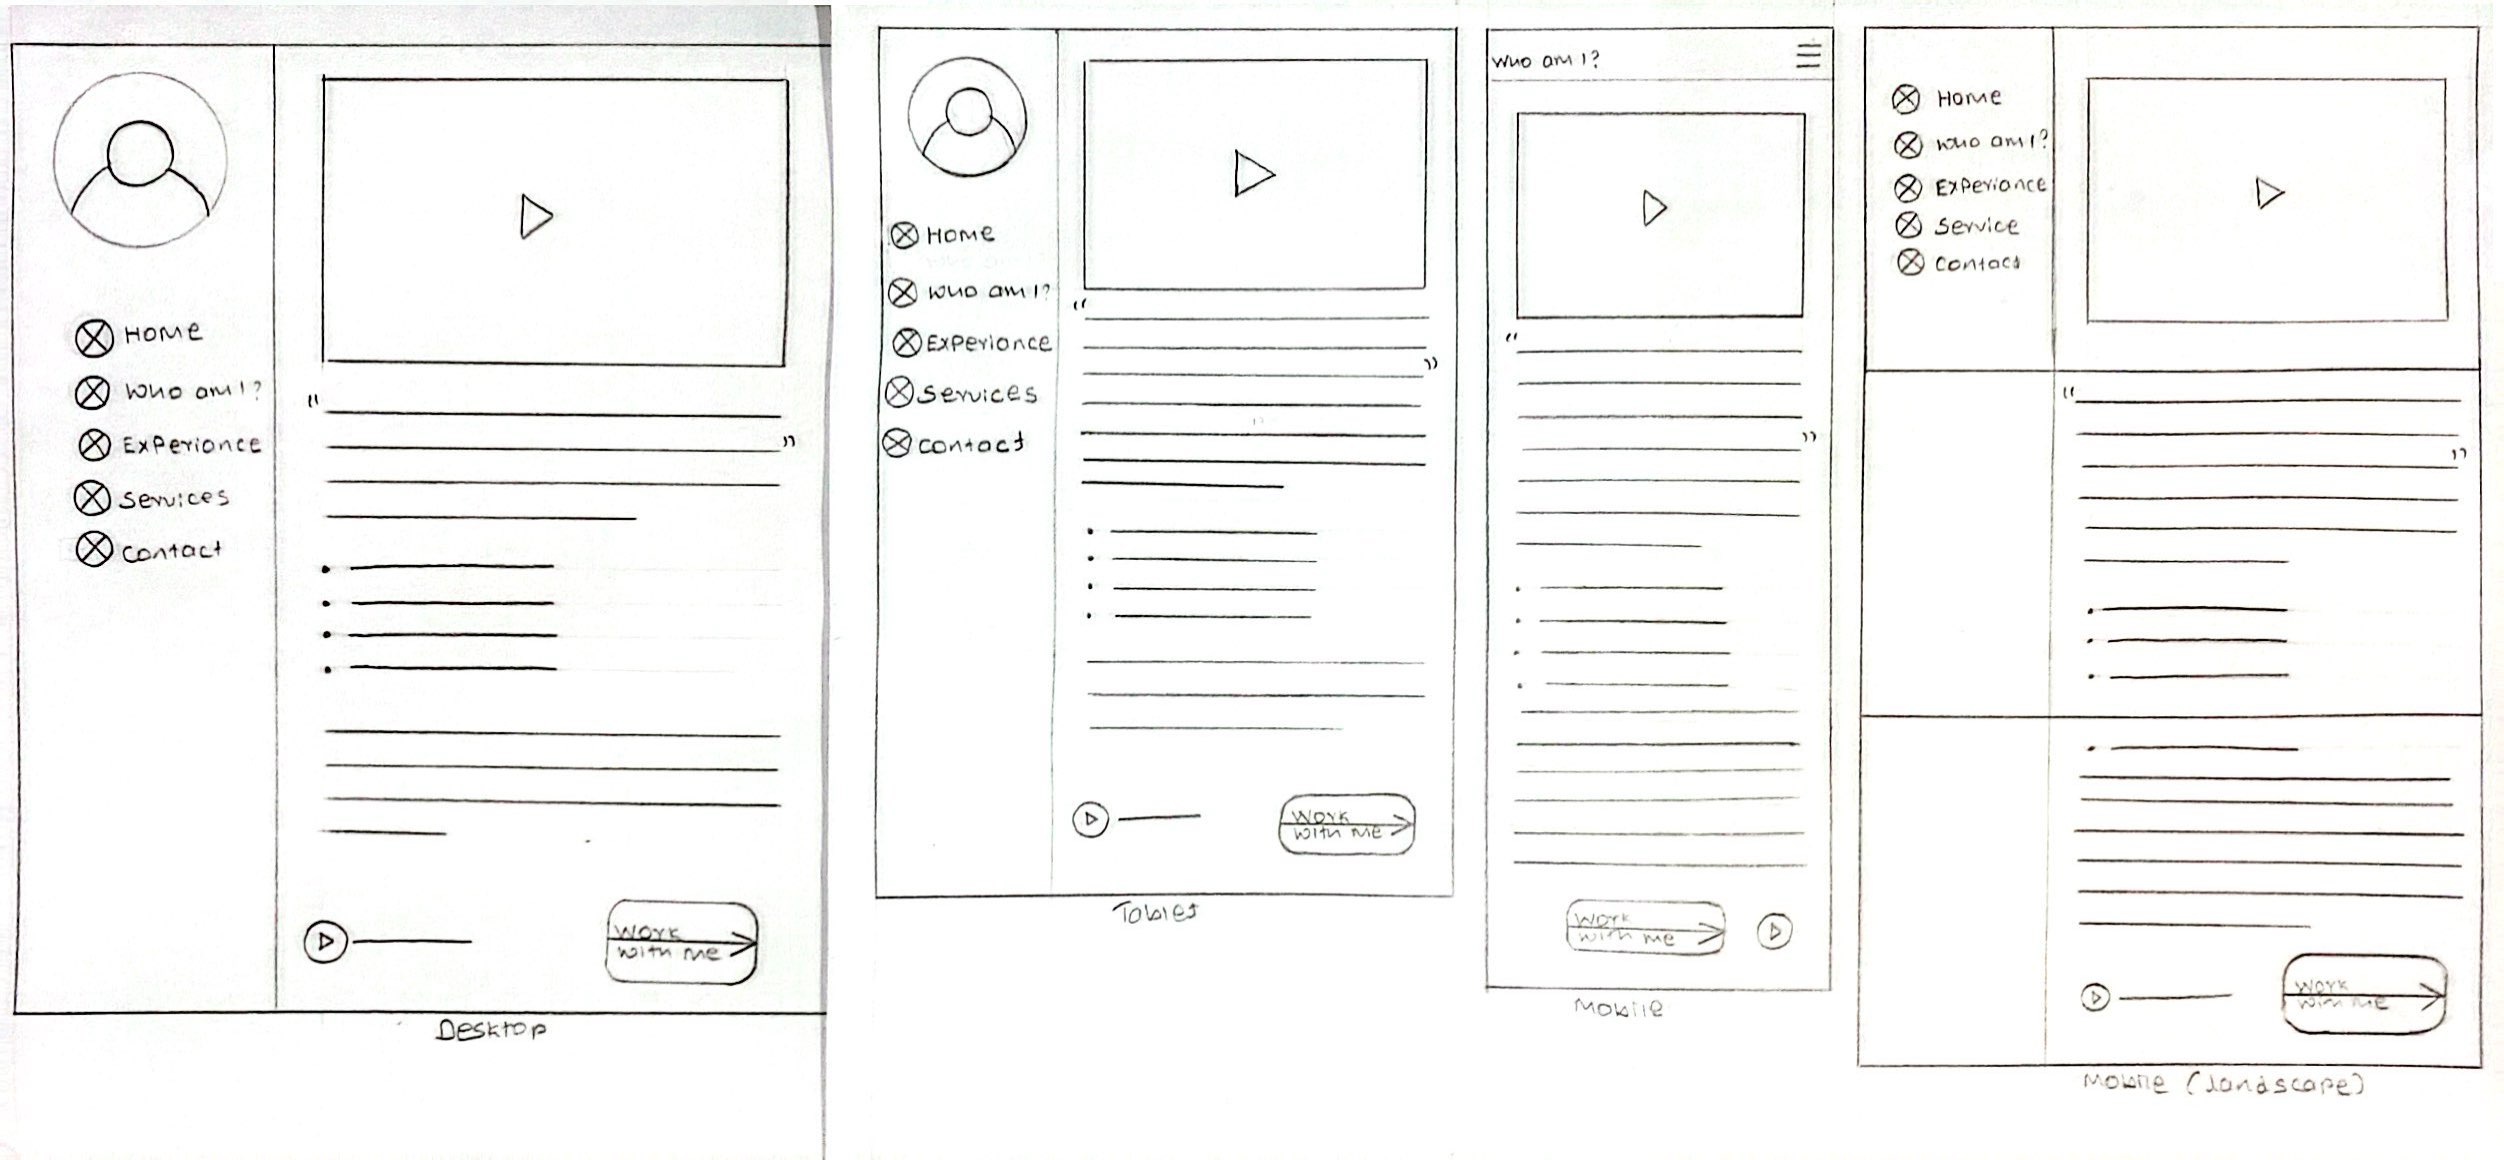 Home
Who am I?
Experiance
Services
Contact
Work
with me
Desktop
Home
who am I?
Experiance
Services
Contact
Work
with me
Tablet
Who am I?
Work
with me
Mobile
Home
who am I?
Experiance
Service
Contact
Work
with me
Mobile (landscape)